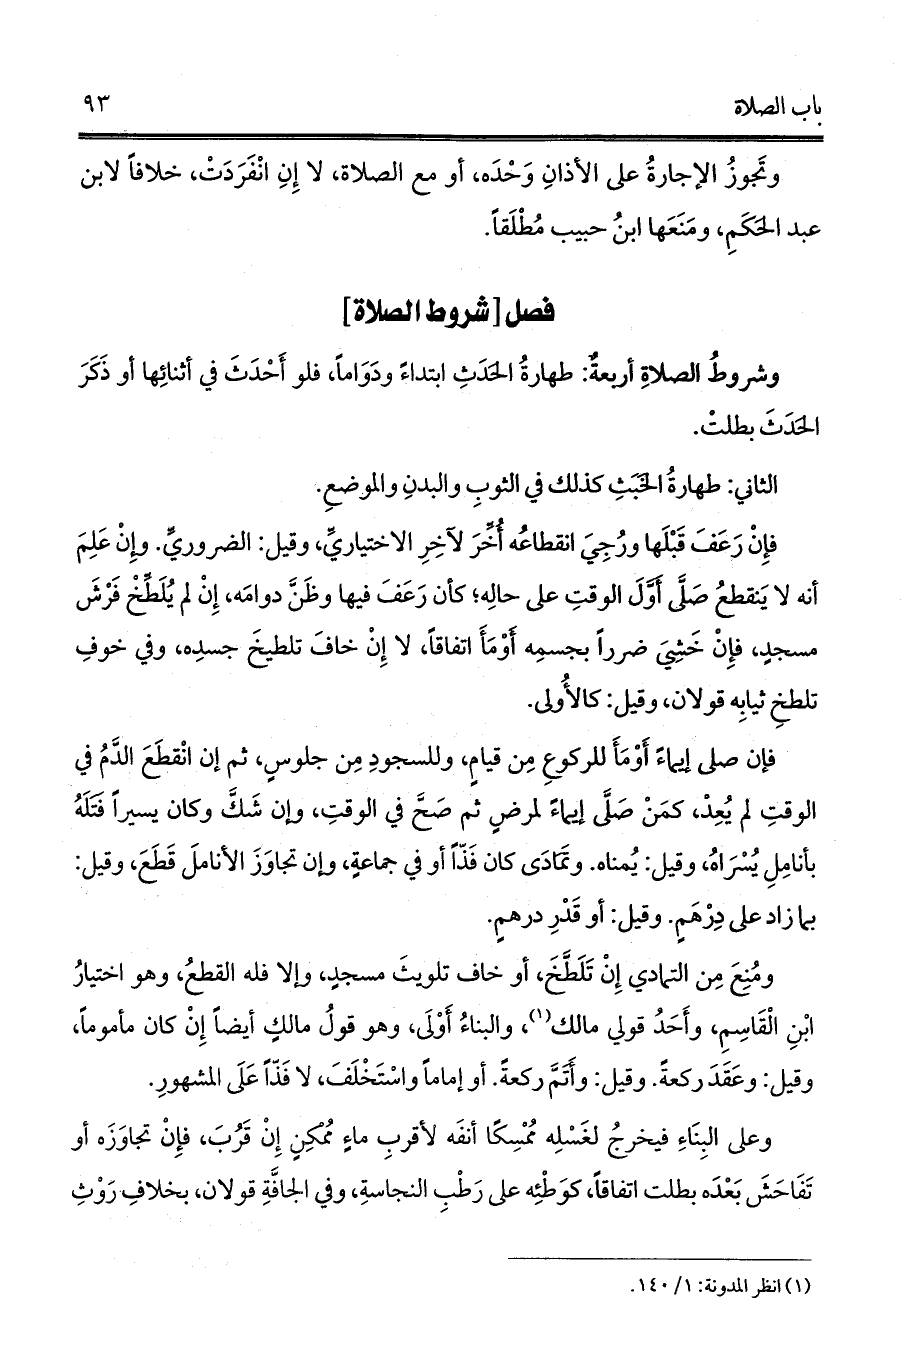 باب الصلاة
٩٣
وتَجوزُ الإجارةُ على الأذانِ وَحْدَه، أو مع الصلاة، لا إِنِ انْفَرَدَتْ، خلافاً لابن
عبد الحَكَمِ، ومَنَعَها ابنُ حبيب مُطْلَقاً.
فصل [شروط الصلاة]
وشروطُ الصلاةِ أربعةٌ: طهارةُ الحَدَثِ ابتداءً ودَوَاماً، فلو أَحْدَثَ في أثنائِها أو ذَكَرَ
الحَدَثَ بطلتْ.
الثاني: طهارةُ الخَبَثِ كذلك في الثوبِ والبدنِ والموضعِ.
فإِنْ رَعَفَ قَبْلَها ورُجِيَ انقطاعُه أُخِّرَ لآخِرِ الاختياريِّ، وقيل: الضروريِّ. وإِنْ عَلِمَ
أنه لا يَنقطعُ صَلَّى أَوَّلَ الوقتِ على حالِه؛ كأن رَعَفَ فيها وظَنَّ دوامَه، إِنْ لم يُلَطِّخْ فَرْشَ
مسجدٍ، فإِنْ خَشِيَ ضرراً بجسمِه أَوْمَأَ اتفاقاً، لا إِنْ خافَ تلطيخَ جسدِه، وفي خوفِ
تلطخِ ثيابِه قولان، وقيل: كالأُولى.
فإن صلى إيماءً أَوْمَأَ للركوعِ مِن قيامٍ، وللسجودِ مِن جلوسٍ، ثم إن انْقطَعَ الدَّمُ في
الوقتِ لم يُعِدْ، كمَنْ صَلَّى إيماءً لمرضٍ ثم صَحَّ في الوقتِ، وإن شَكَّ وكان يسيراً فَتَلَهُ
بأناملِ يُسْرَاهُ، وقيل: يُمناه. وتَمَادَى كان فَذّاً أو في جماعةٍ، وإن تجاوَزَ الأناملَ قَطَعَ، وقيل:
بما زاد على دِرْهَمٍ. وقيل: أو قَدْرِ درهمٍ.
ومُنِعَ مِن التمادي إِنْ تَلَطَّخَ، أو خاف تلويثَ مسجدٍ، وإلا فله القطعُ، وهو اختيارُ
ابْنِ الْقَاسِمِ، وأَحَدُ قولي مالك(١)، والبناءُ أَوْلَى، وهو قولُ مالكٍ أيضاً إِنْ كان مأموماً،
وقيل: وعَقَدَ ركعةً. وقيل: وأَتَمَّ ركعةً. أو إماماً واسْتَخْلَفَ، لا فَذّاً عَلَى المشهورِ.
وعلى البِنَاءِ فيخرجُ لغَسْلِه مُمْسِكًا أنفَه لأقربِ ماءٍ مُمْكِنٍ إِنْ قَرُبَ، فإِنْ تجاوَزَه أو
تَفَاحَشَ بَعْدَه بطلت اتفاقاً، كوَطْئِه على رَطْبِ النجاسةِ، وفي الجافَّةِ قولان، بخلافِ رَوْثِ
(١) انظر المدونة: ١/ ١٤٠.